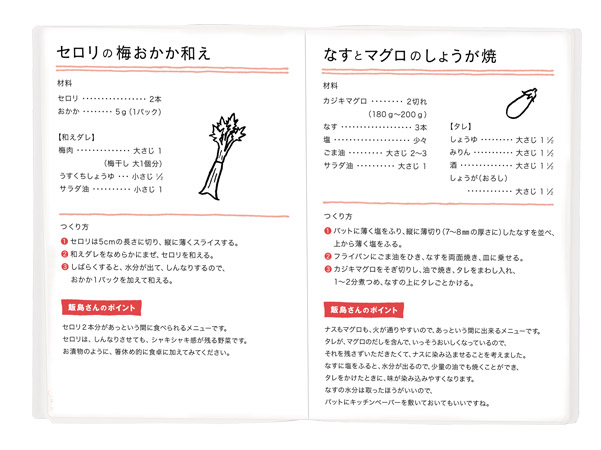 セロリの梅おかか和え
材料
セロリ ・・・・・・・・・・・・・・・・ 2本
おかか ・・・・・・・・ 5g（1パック）
【和えダレ】
梅肉 ・・・・・・・・・・・・・ 大さじ 1
（梅干し 大1個分）
うすくちしょうゆ ・・・ 小さじ ½
サラダ油 ・・・・・・・・・ 小さじ 1
つくり方
❶ セロリは5cmの長さに切り、縦に薄くスライスする。
❷ 和えダレをなめらかにまぜ、セロリを和える。
❸ しばらくすると、水分が出て、しんなりするので、
おかか1パックを加えて和える。
飯島さんのポイント
セロリ2本分があっという間に食べられるメニューです。
セロリは、しんなりさせても、シャキシャキ感が残る野菜です。
お漬物のように、箸休め的に食卓に加えてみてください。
なすとマグロのしょうが焼
材料
カジキマグロ ・・・・・・・・ 2切れ
（180g〜200g）
なす ・・・・・・・・・・・・・・・・・・ 3本
塩 ・・・・・・・・・・・・・・・・・・・ 少々
ごま油 ・・・・・・・・・ 大さじ 2〜3
サラダ油 ・・・・・・・・・・ 大さじ 1
【タレ】
しょうゆ ・・・・・・・・ 大さじ 1½
みりん ・・・・・・・・・ 大さじ 1½
酒 ・・・・・・・・・・・・・ 大さじ 1½
しょうが（おろし）
・・・・・・・・・・・ 大さじ 1½
つくり方
❶ バットに薄く塩をふり、縦に薄切り（7〜8㎜の厚さに）したなすを並べ、
上から薄く塩をふる。
❷ フライパンにごま油をひき、なすを両面焼き、皿に乗せる。
❸ カジキマグロをそぎ切りし、油で焼き、タレをまわし入れ、
1〜2分煮つめ、なすの上にタレごとかける。
飯島さんのポイント
ナスもマグロも、火が通りやすいので、あっという間に出来るメニューです。
タレが、マグロのだしを含んで、いっそうおいしくなっているので、
それを残さずいただきたくて、ナスに染み込ませることを考えました。
なすに塩をふると、水分が出るので、少量の油でも焼くことができ、
タレをかけたときに、味が染み込みやすくなります。
なすの水分は取ったほうがいいので、
バットにキッチンペーパーを敷いておいてもいいですね。